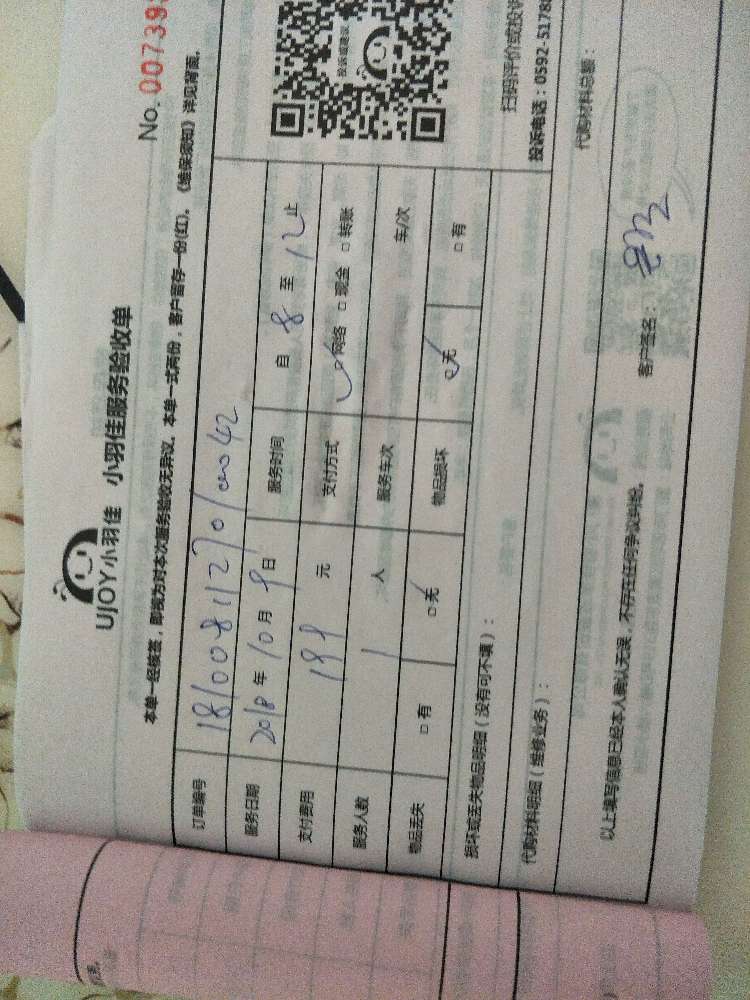 UJOY小羽佳 小羽佳服务验收单
No. 007393
本单一经核签，即视为对本次服务验收无异议。本单一式两份，客户留存一份(红)。《维保须知》详见背面。
订单编号 18100811270100042
服务日期 2018年10月9日 服务时间 自 8 至 12 止
支付费用 199 元 支付方式 ☑网络 □现金 □转账
服务人数 1 人 服务车次 车/次
物品丢失 □有 □无 物品损坏 □无 □有
投诉或建议
扫码评价或投诉
投诉电话：0592-5178
损坏或丢失物品明细（没有可不填）：
代购材料明细（维修业务）：
代购材料总额：
以上填写信息已经本人确认无误，不存在任何争议纠纷。 客户签名：